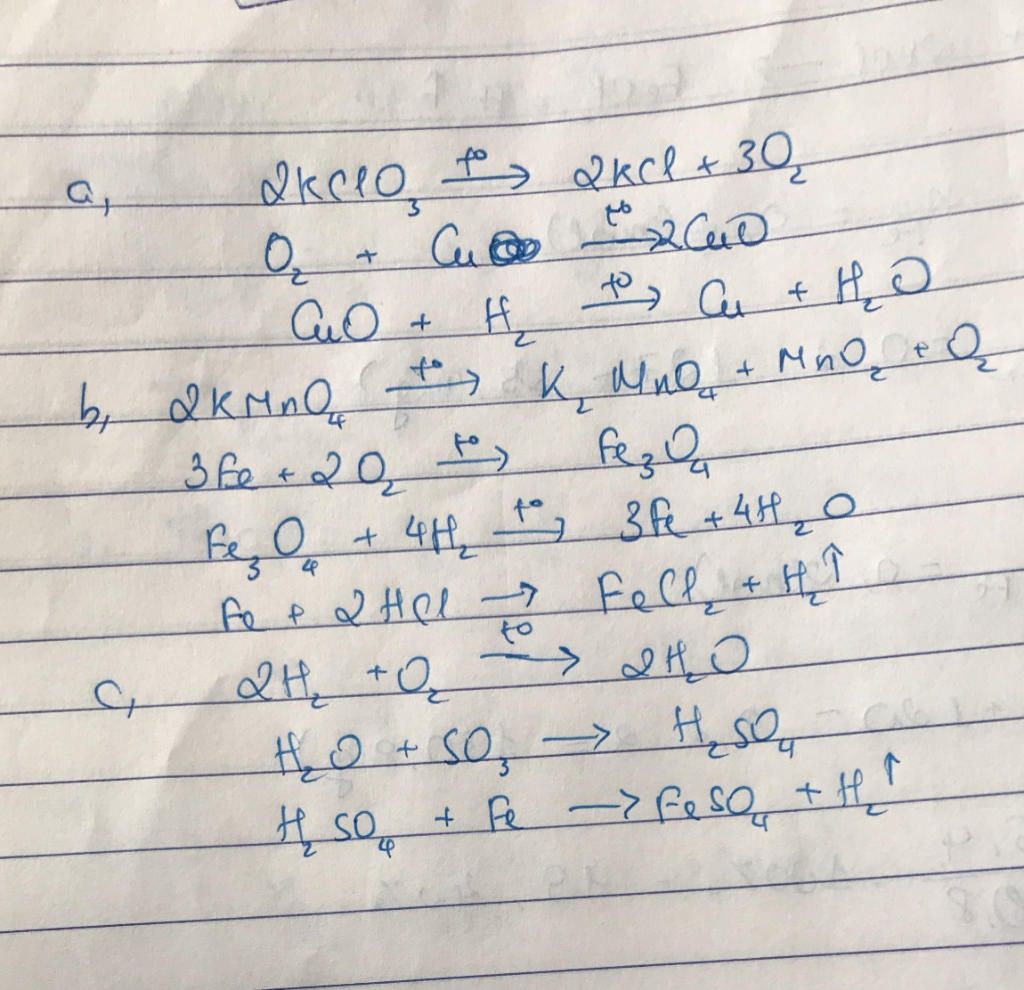 a, 2KClO₃ →(t°) 2KCl + 3O₂
O₂ + Cu →(t°) 2CuO
CuO + H₂ →(t°) Cu + H₂O
b, 2KMnO₄ →(t°) K₂MnO₄ + MnO₂ + O₂
3Fe + 2O₂ →(t°) Fe₃O₄
Fe₃O₄ + 4H₂ →(t°) 3Fe + 4H₂O
Fe + 2HCl → FeCl₂ + H₂↑
c, 2H₂ + O₂ →(t°) 2H₂O
H₂O + SO₃ → H₂SO₄
H₂SO₄ + Fe → FeSO₄ + H₂↑